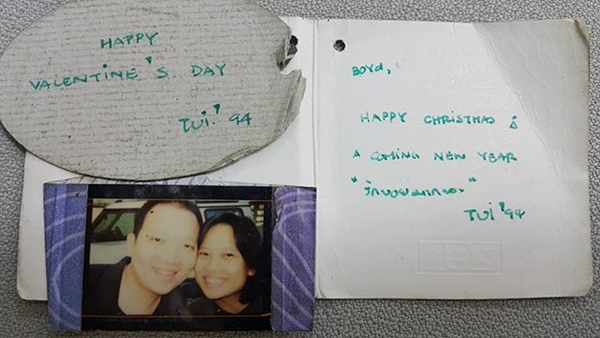 HAPPY
VALENTINE'S DAY
TUi.' 94
BOYd,
HAPPY CHRISTMAS &
A COMING NEW YEAR
TUi '94